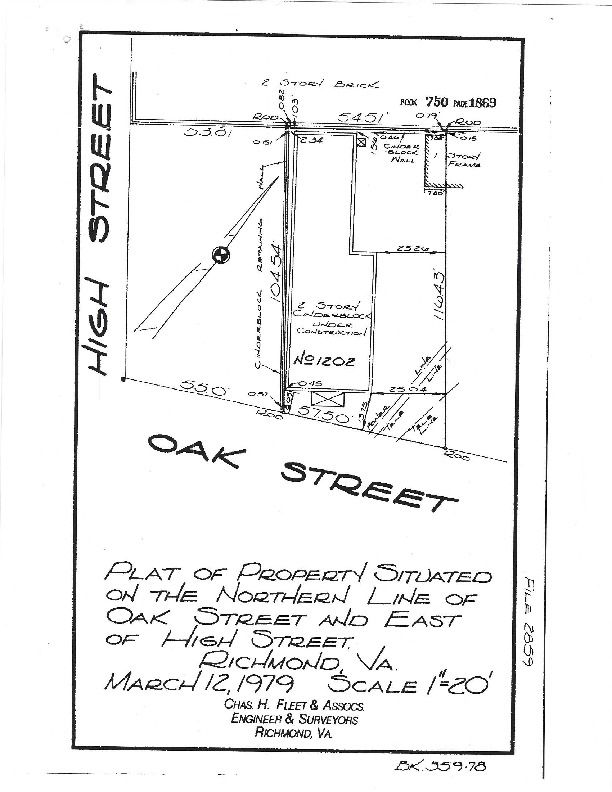 2 STORY BRICK
BOOK 750 PAGE 1869
0.82
1.03'
ROD
54.51'
0.19'
ROD
0.15
0.61'
2.34
CINDER
BLOCK
WALL
1 STORY
FRAME
HIGH STREET
CINDERBLOCK RETAINING WALL
104.54'
25.26
116.43'
2 STORY
CINDERBLOCK
UNDER
CONSTRUCTION
No 1202
0.45
25.04
55.0'
57.50'
OAK STREET
PLAT OF PROPERTY SITUATED
ON THE NORTHERN LINE OF
OAK STREET AND EAST
OF HIGH STREET,
RICHMOND, VA.
MARCH 12, 1979 SCALE 1"=20'
CHAS. H. FLEET & ASSOCS.
ENGINEER & SURVEYORS
RICHMOND, VA.
FILE 2859
BK. 359-78